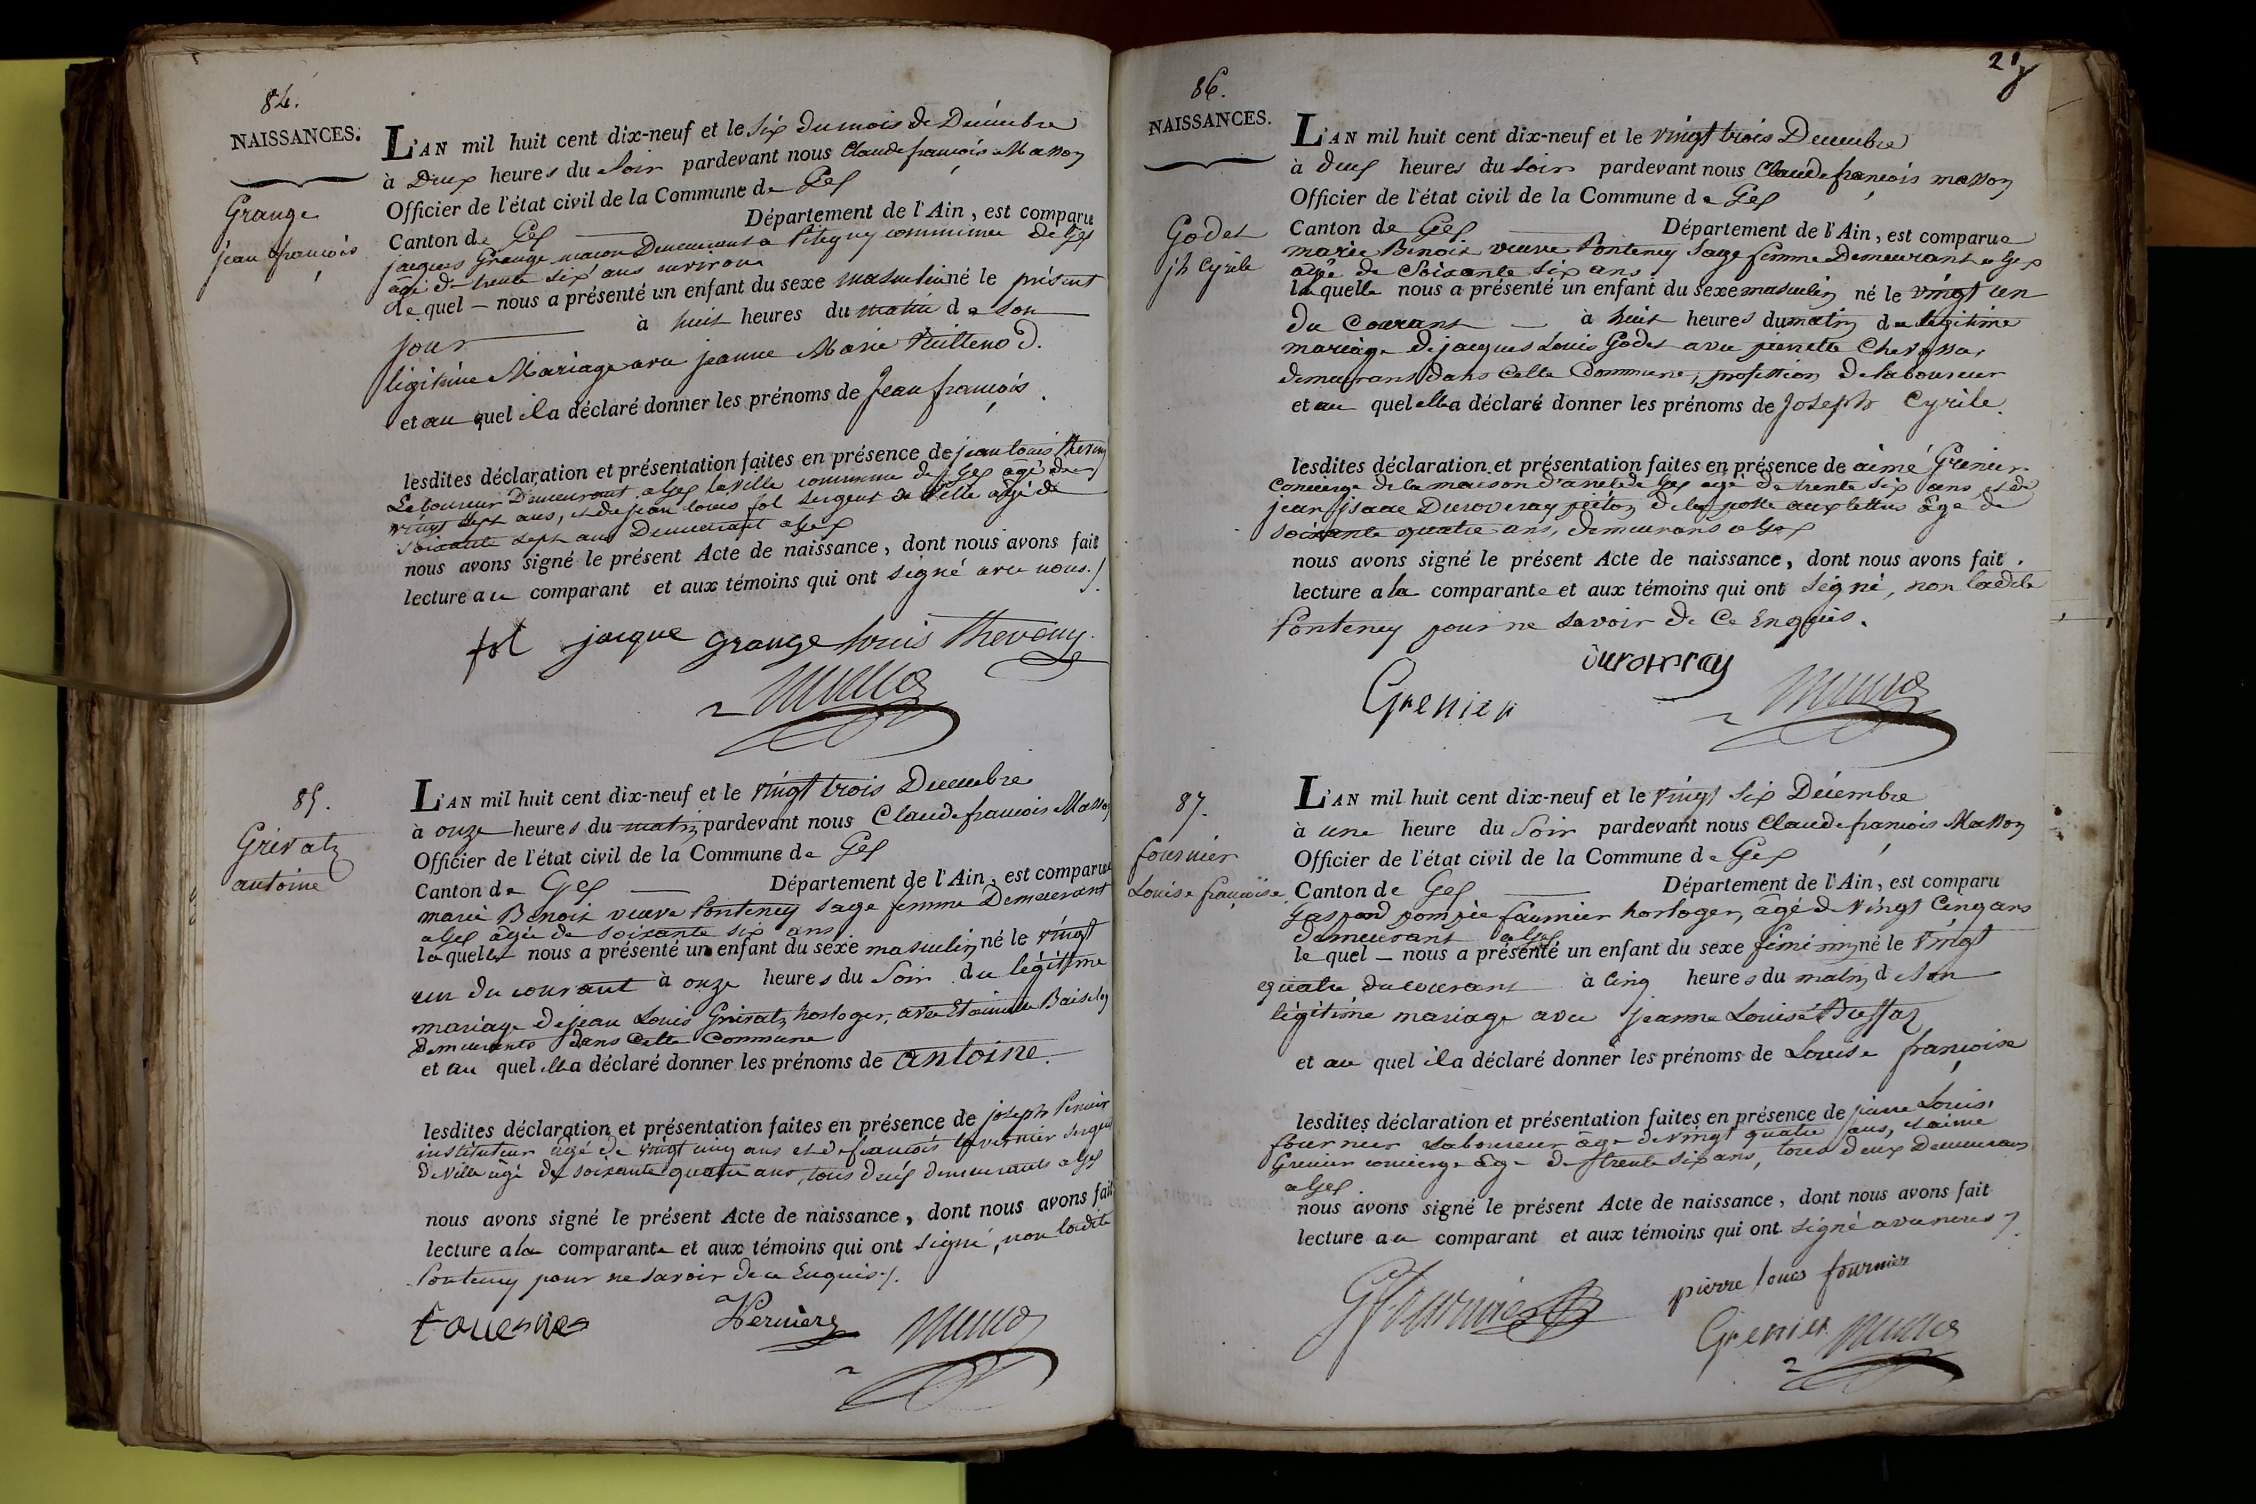 84.
NAISSANCES.
Grange
jean françois
L'AN mil huit cent dix-neuf et le Six du mois de Décembre
à Deux heures du Soir pardevant nous Claude françois Masson
Officier de l'état civil de la Commune de Gex
Canton de Gex Département de l'Ain, est comparu
jacques Grange macon Demeurant a Pitegny commune de Gex
âgé de trente six ans environ
lequel nous a présenté un enfant du sexe masculin né le présent
jour à huit heures du matin de son
légitime Mariage avec jeanne Marie
et au quel il a déclaré donner les prénoms de Jean françois.
lesdites déclaration et présentation faites en présence de jean louis
Laboureur Demeurant a Gex la ville commune de Gex âgé de
vingt sept ans, et de jean louis fol Sergent de Ville âgé de
Soixante sept ans Demeurant a Gex
nous avons signé le présent Acte de naissance, dont nous avons fait
lecture au comparant et aux témoins qui ont signé avec nous./.
fol jacque grange louis Thevony
85.
Grivatz
antoine
L'AN mil huit cent dix-neuf et le vingt trois Decembre
à onze heures du matin pardevant nous Claude francois Masson
Officier de l'état civil de la Commune de Gex
Canton de Gex Département de l'Ain, est comparue
marie Benoit veuve Ponteney Sage femme Demeurant
a Gex âgée de soixante six ans
laquelle nous a présenté un enfant du sexe masculin né le vingt
un du courant à onze heures du Soir du légitime
mariage de jean Louis Grivatz horloger, avec Etiennette
demeurants dans Cette Commune
et au quel elle a déclaré donner les prénoms de antoine.
lesdites déclaration et présentation faites en présence de joseph
instituteur âgé de vingt cinq ans et de francois tavernier Sergent
de Ville âgé de soixante quatre ans, tous deux demeurants a Gex
nous avons signé le présent Acte de naissance, dont nous avons fait
lecture a la comparante et aux témoins qui ont signé, non ladite
Ponteney pour ne savoir de ce Enquis./.
86.
21
NAISSANCES.
Godet
jh Cyrile
L'AN mil huit cent dix-neuf et le vingt trois Decembre
à deux heures du soir pardevant nous Claude françois masson
Officier de l'état civil de la Commune de Gex
Canton de Gex Département de l'Ain, est comparue
marie Benoit veuve Ponteney Sage femme Demeurant a Gex
âgée de Soixante six ans
laquelle nous a présenté un enfant du sexe masculin né le vingt un
du Courant à huit heures du matin du légitime
mariage de jacques Louis Godet avec pernette
demeurans dans Cette Commune, profession de laboureur
et au quel elle a déclaré donner les prénoms de Joseph Cyrile.
lesdites déclaration et présentation faites en présence de aimé Grenier
Concierge de la maison d'arret de Gex agé de trente six ans et de
jean isaac Duroveray piéton de la poste aux lettres âgé de
soixante quatre ans, demeurans a Gex
nous avons signé le présent Acte de naissance, dont nous avons fait
lecture a la comparante et aux témoins qui ont signé, non ladite
Ponteney pour ne savoir de Ce Enquis.
duroveray
Grenier
87.
fournier
Louise françoise
L'AN mil huit cent dix-neuf et le vingt Six Décembre
à une heure du Soir pardevant nous Claude françois Masson
Officier de l'état civil de la Commune de Gex
Canton de Gex Département de l'Ain, est comparu
Gaspard pompée fournier horloger, âgé de Vingt Cinq ans
demeurant a Gex
lequel nous a présenté un enfant du sexe féminin né le Vingt
quatre du courant à Cinq heures du matin de Son
légitime mariage avec Jeanne Louise
et au quel il a déclaré donner les prénoms de Louise françoise
lesdites déclaration et présentation faites en présence de pierre Louis
fournier Laboureur âgé de vingt quatre ans, et aimé
Grenier concierge âgé de trente six ans, tous deux Demeurans
a Gex.
nous avons signé le présent Acte de naissance, dont nous avons fait
lecture au comparant et aux témoins qui ont signé avec nous
pierre louis fournier
Grenier